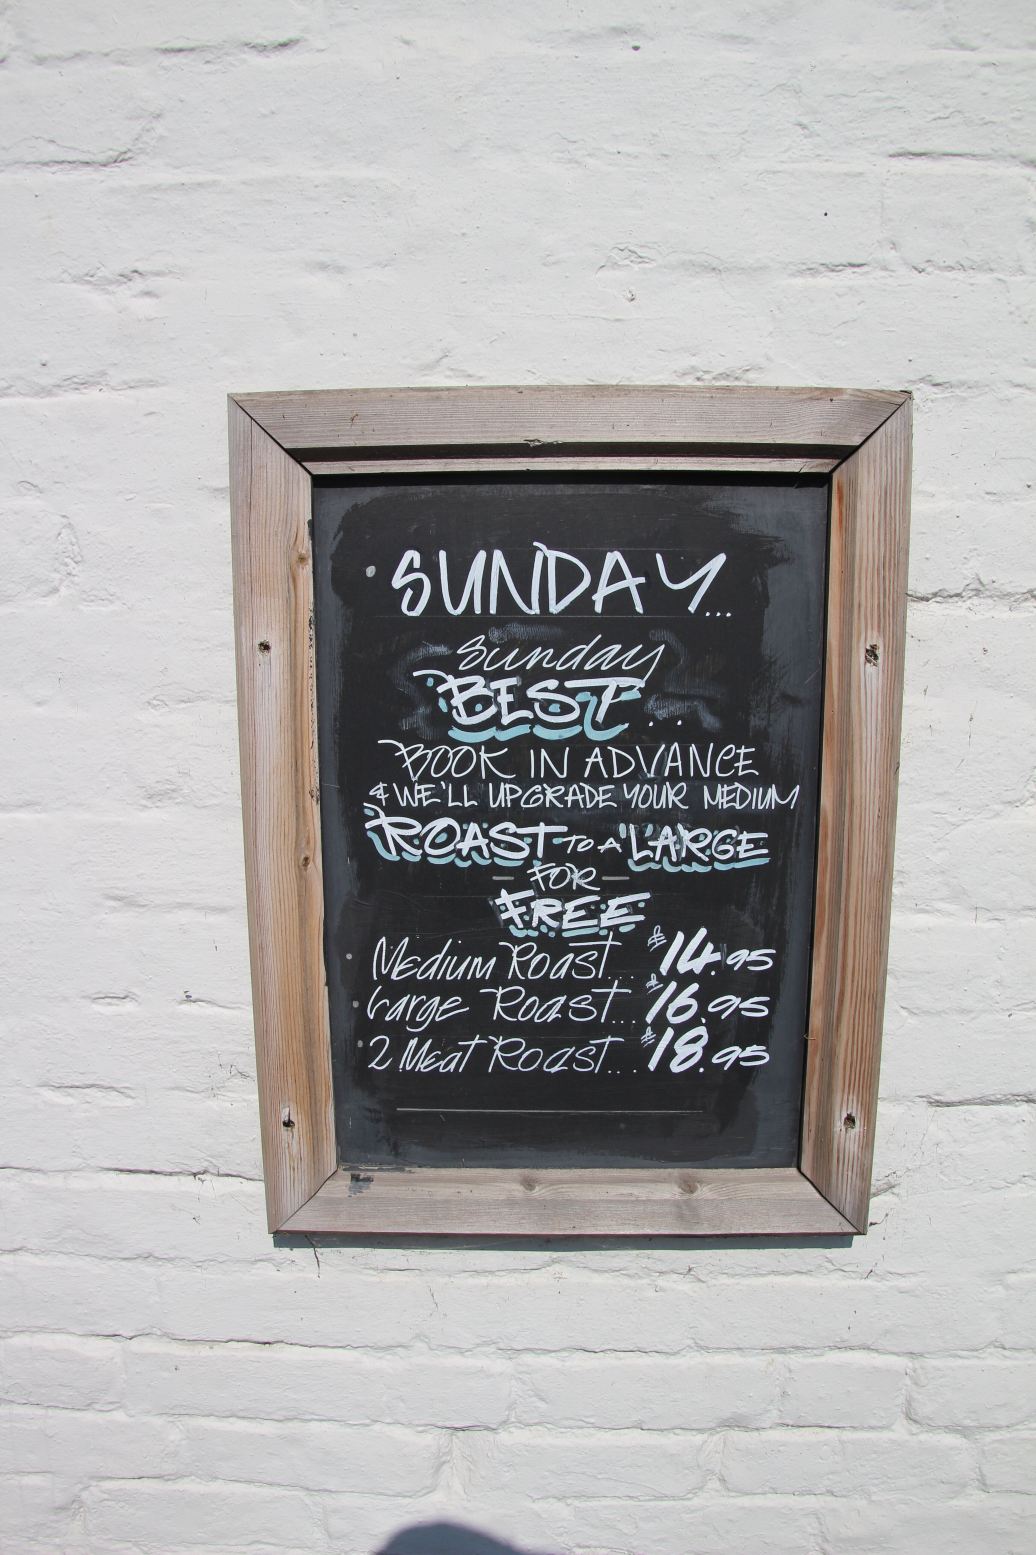 SUNDAY...
Sunday
BEST...
BOOK IN ADVANCE
& WE'LL UPGRADE YOUR MEDIUM
ROAST TO A "LARGE
FOR
FREE
Medium Roast... £14.95
Large Roast... £16.95
2 Meat Roast... £18.95